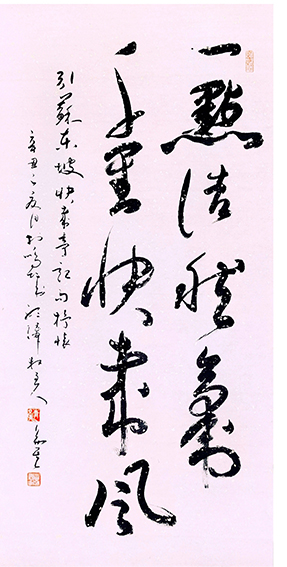 一點浩然氣
千里快哉風
引蘇東坡快哉亭記句抒懷
辛丑之夏日於鳴